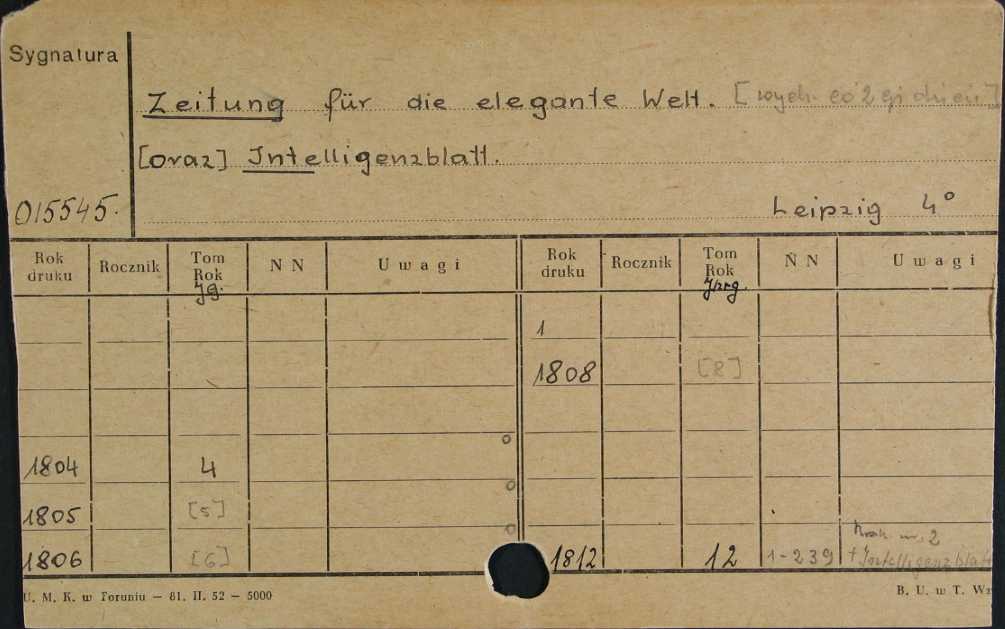 Sygnatura
Zeitung für die elegante Welt. [wych. co 2gi dzień]
[oraz] Intelligenzblatt.
015545. Leipzig 4°
Rok druku Rocznik Tom Rok Jg. N N Uwagi Rok druku Rocznik Tom Rok Jhrg. N N Uwagi
1
1808 [8]
1804 4
1805 [5]
Brak nr. 2
1806 [6] 1812 12 1-239 + Intelligenzblatt
U. M. K. w Toruniu — 81. II. 52 — 5000 B. U. w T. Wz